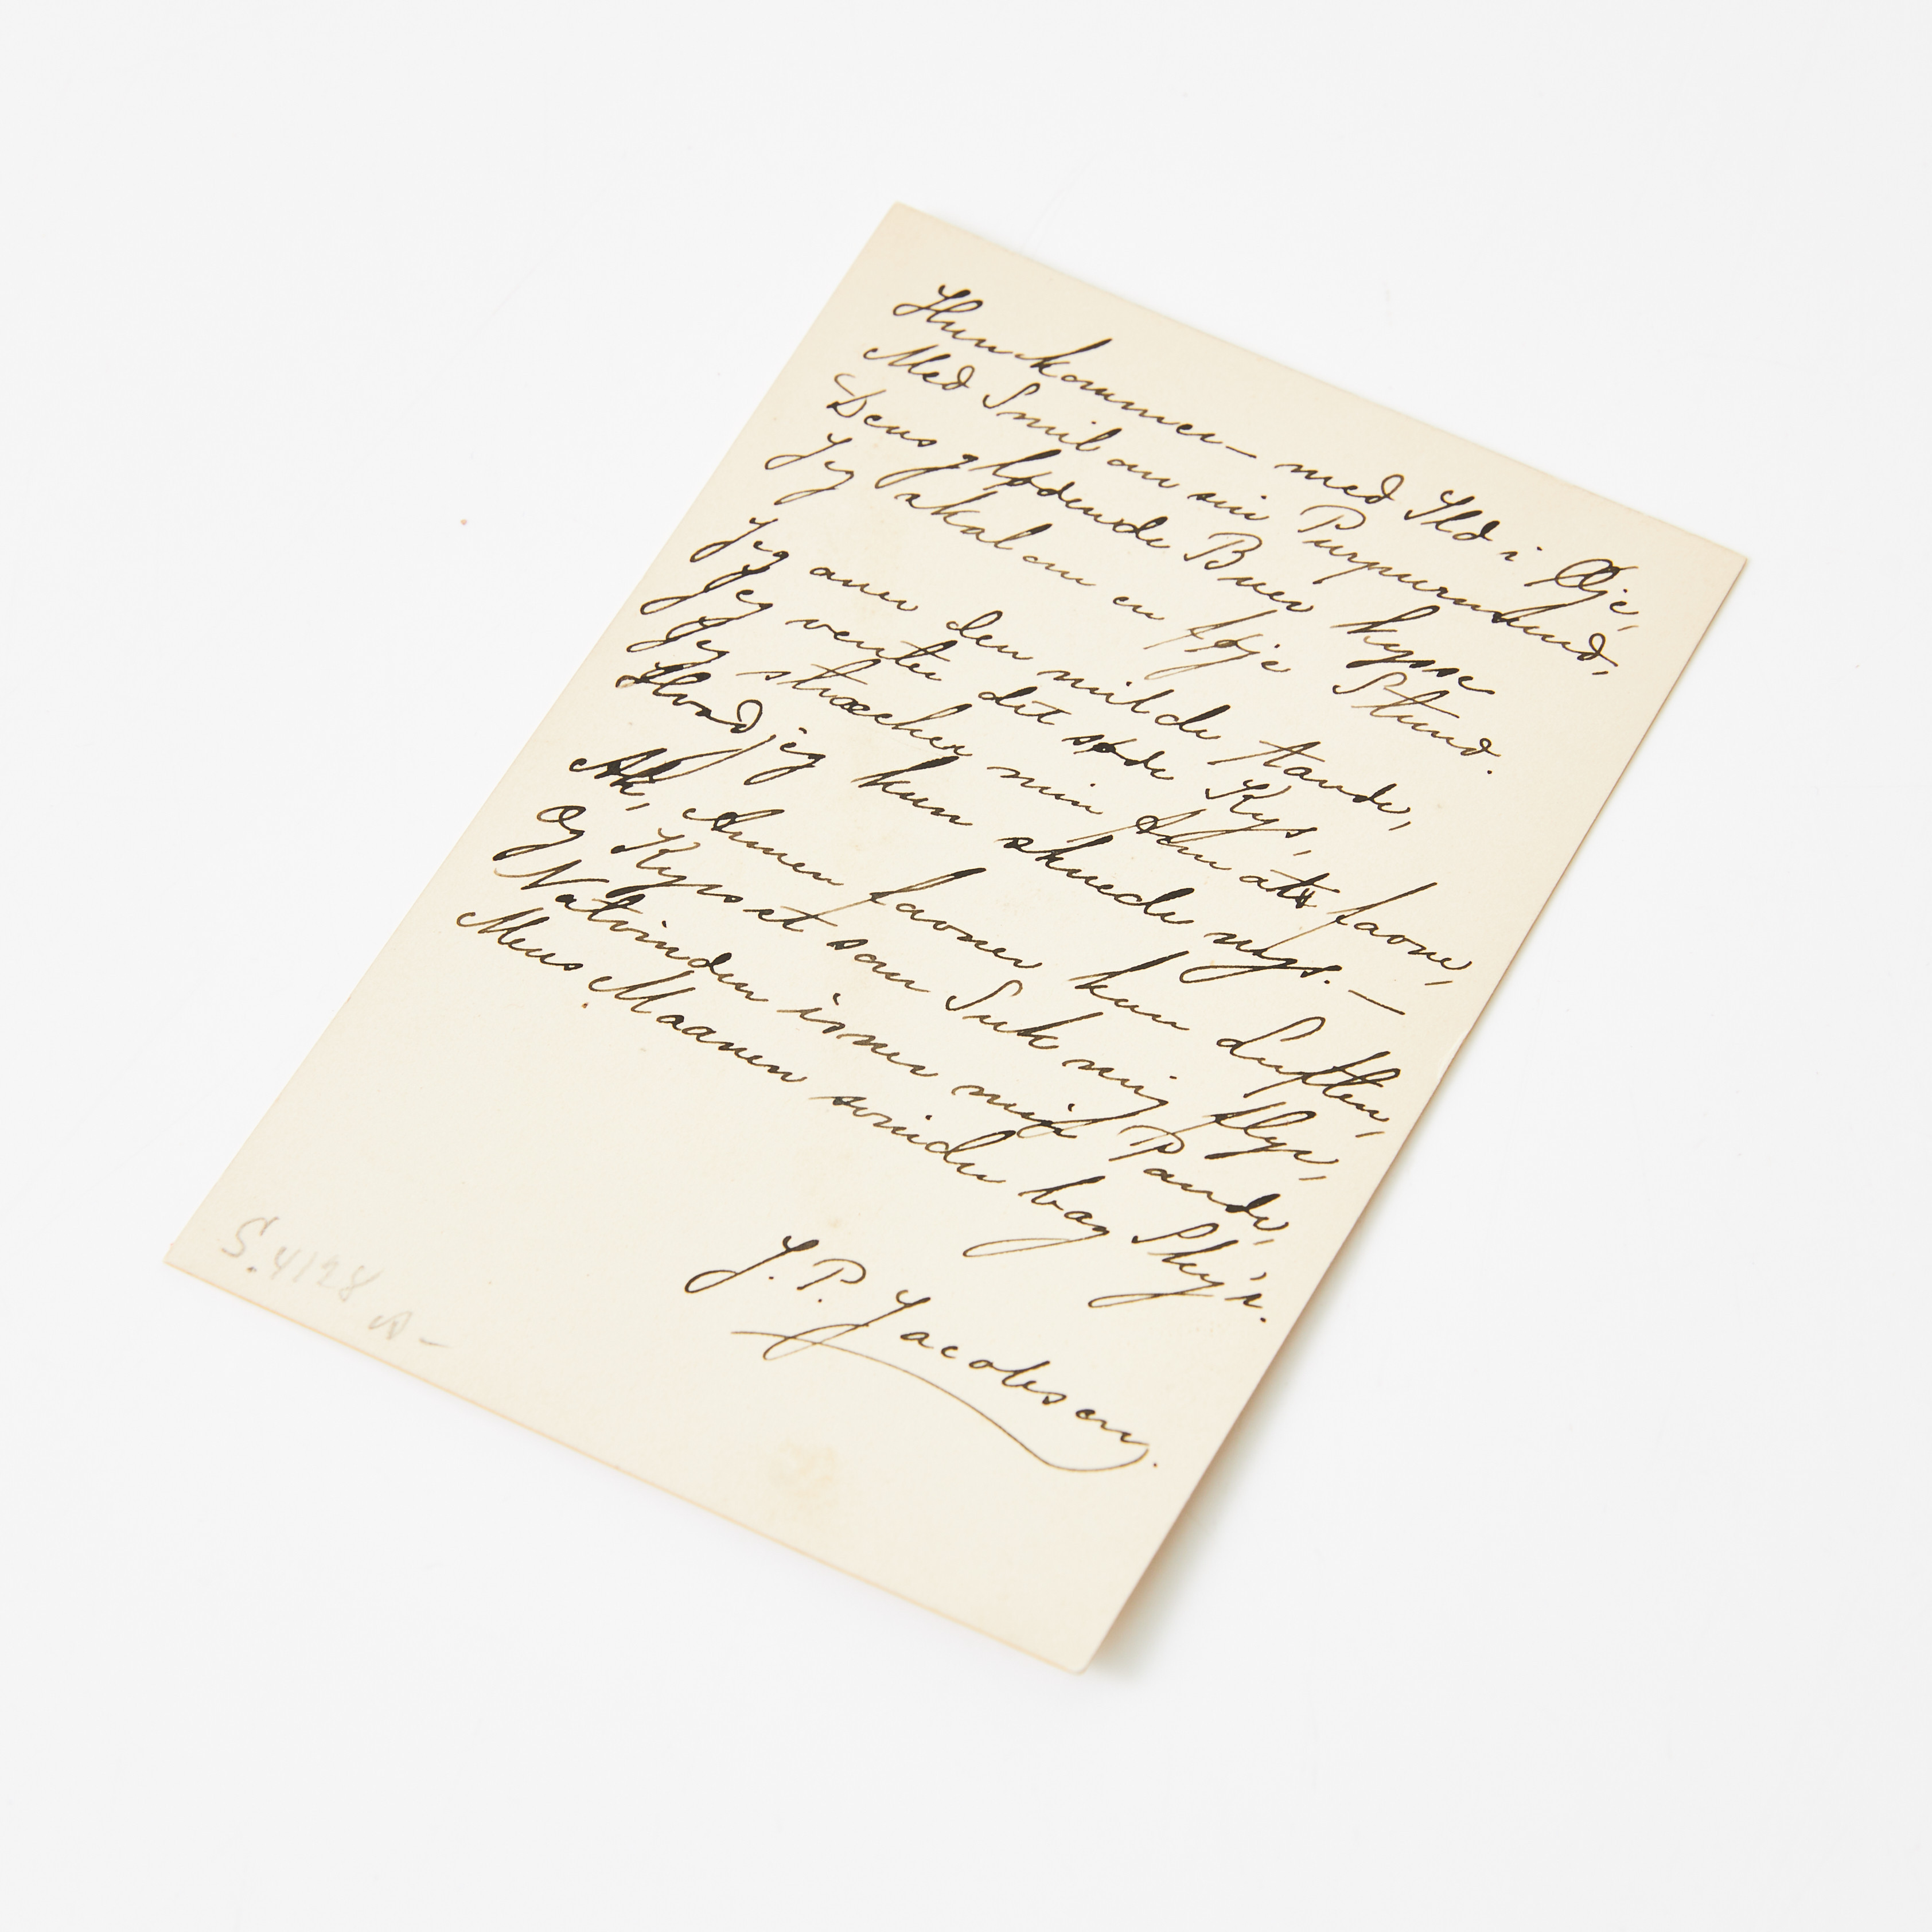 Hun kommer — med Ild i Øje,
Med Smil om sin Purpurmund,
Dens glødende Buer kysse
Jeg skal om en føje Stund.
Jeg aner den milde Aande,
Jeg venter det søde Kys,
Jeg strækker min Arm at favne,
Hvad jeg kun skuede nys. —
Ak, Armen favner kun Luften,
Og Kysset som Suk mig flyr,
Natvinden isner min Pande,
Mens Maanen svinder bag Sky'r.
J. P. Jacobsen.
S. 4128